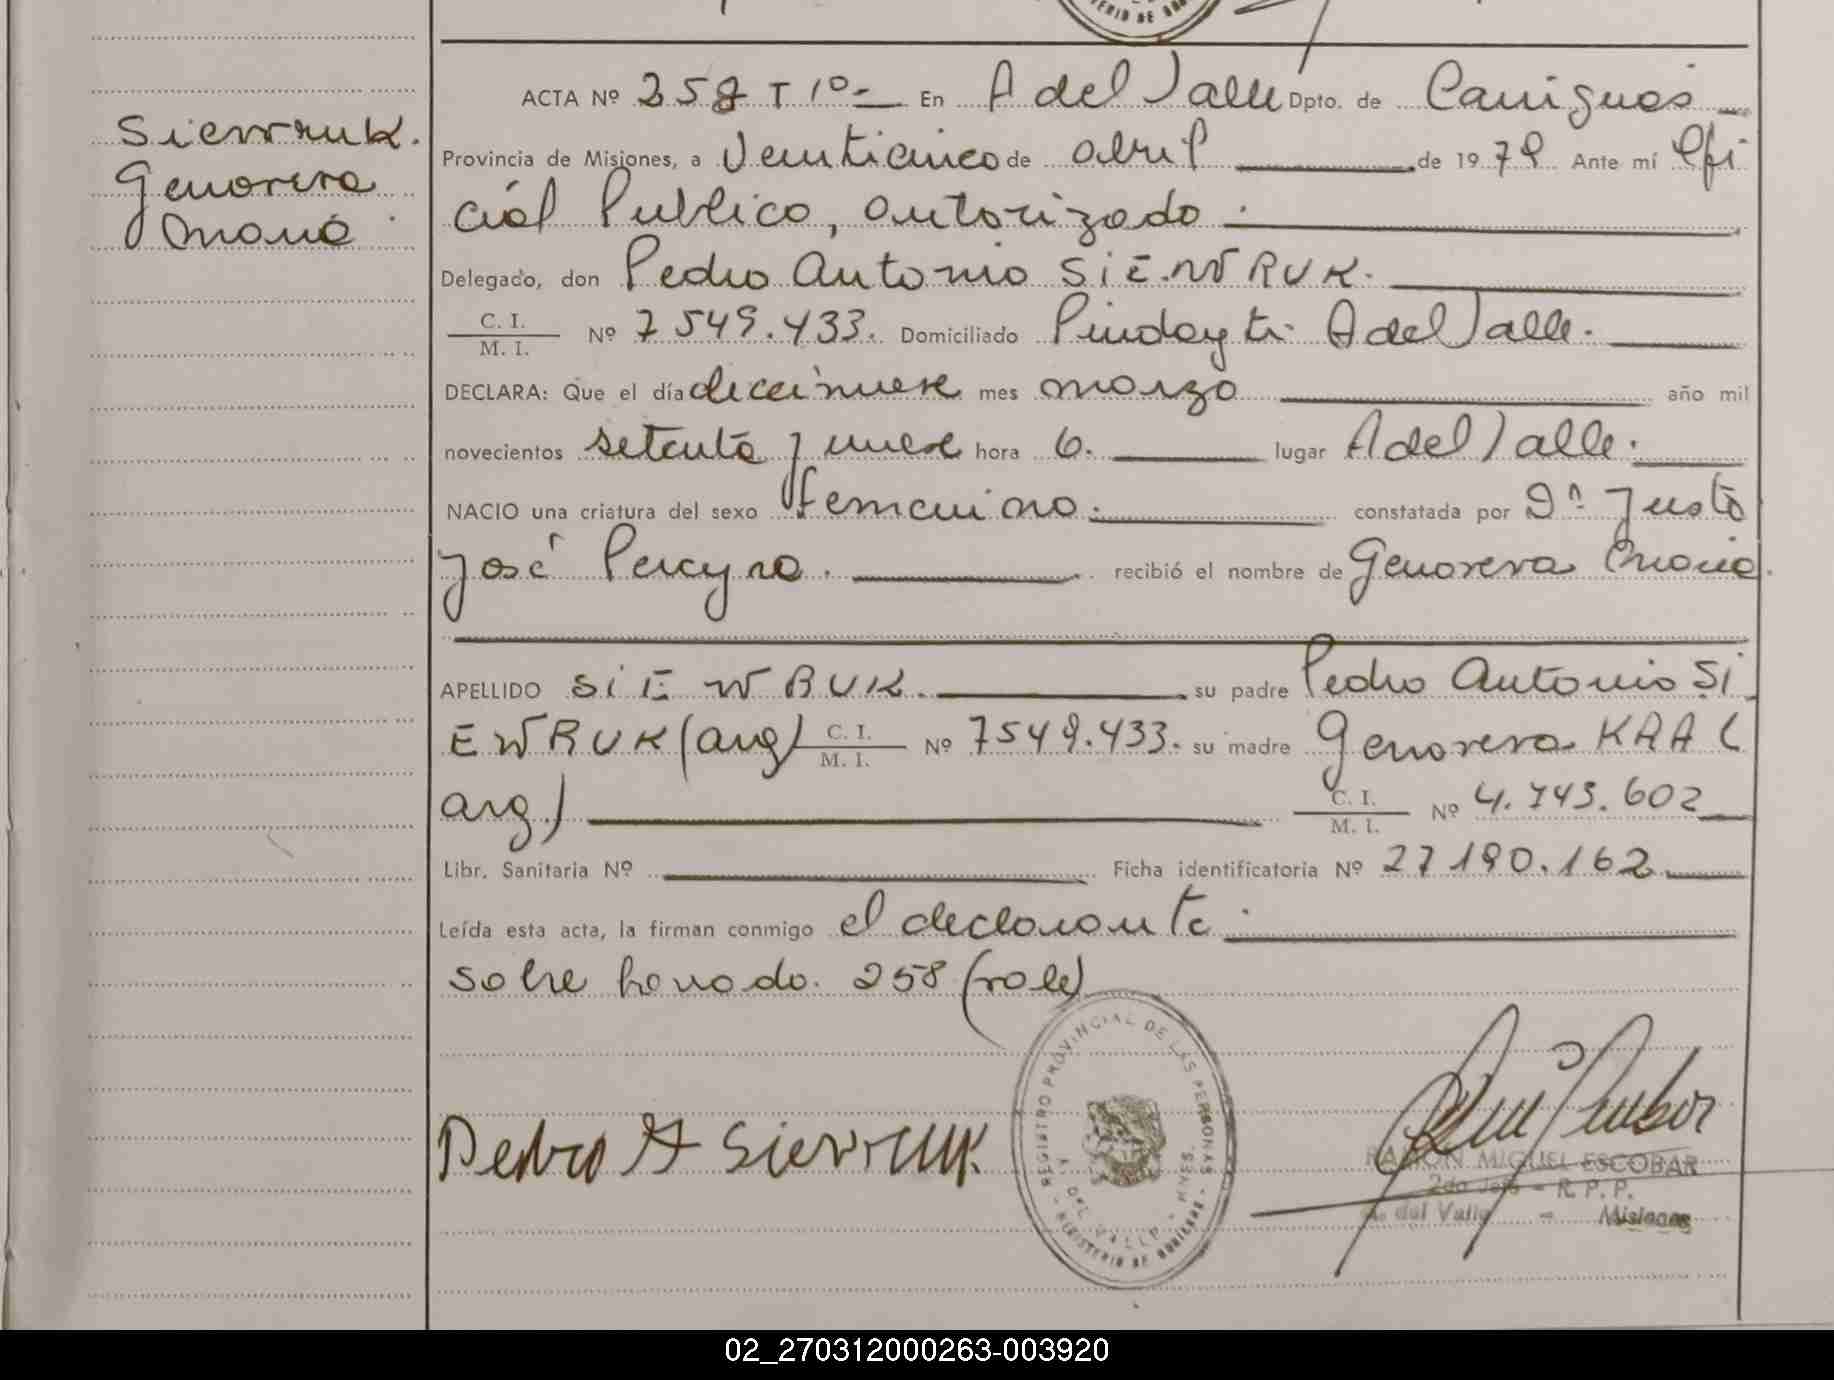 MINISTERIO DE GOBIERNO
Siewruk.
Genoveva
María
ACTA Nº 258 T 1º - En A del Valle Dpto. de Cainguas
Provincia de Misiones, a Veinticinco de abril de 1979 Ante mí Ofi
cial Publico, autorizado.
Delegado, don Pedro Antonio SIEWRUK.
C. I. / M. I. Nº 7549.433. Domiciliado Pindayti A del Valle.
DECLARA: Que el día diecinueve mes marzo año mil
novecientos setenta y nueve hora 6. lugar A del Valle.
NACIO una criatura del sexo femenino. constatada por Dn Justo
José Pereyra. recibió el nombre de Genoveva María.
APELLIDO SIEWRUK. su padre Pedro Antonio SI
EWRUK (arg) C. I. / M. I. Nº 7549.433. su madre Genoveva KRAL (
arg) C. I. / M. I. Nº 4.743.602
Libr. Sanitaria Nº Ficha identificatoria Nº 27190.162
Leída esta acta, la firman conmigo el declarante.
Sobre borrado. 258 (vale)
Pedro A Siewruk
REGISTRO PROVINCIAL DE LAS PERSONAS
A. DEL VALLE - MNES.
MINISTERIO DE GOBIERNO
RAMON MIGUEL ESCOBAR
2do Jefe - R. P. P.
A. del Valle - Misiones
02_270312000263-003920